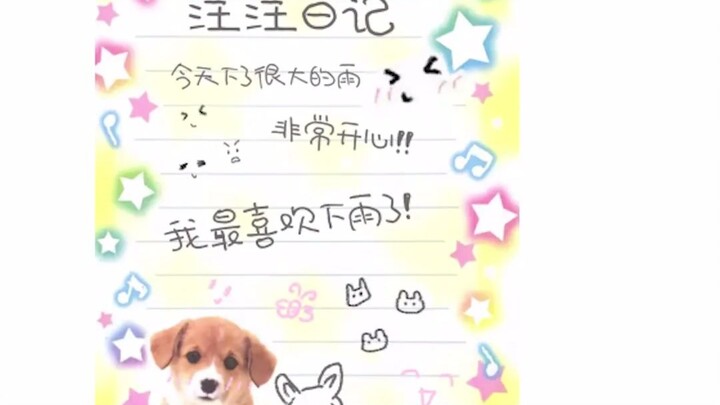 汪汪日记
今天下了很大的雨
非常开心!!
我最喜欢下雨了!